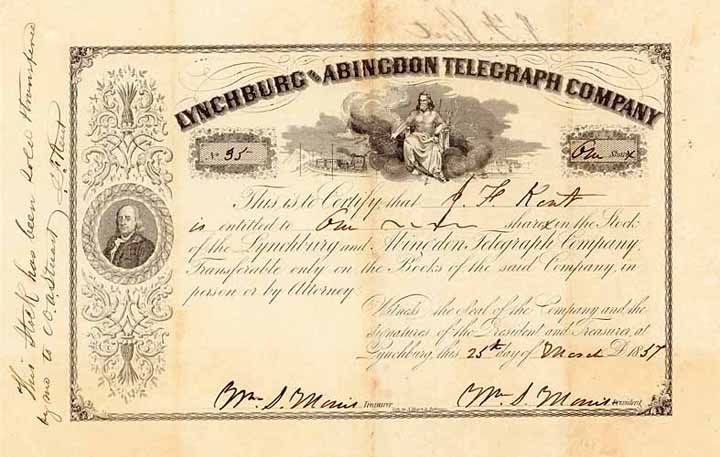 LYNCHBURG AND ABINGDON TELEGRAPH COMPANY
No 35
One Share
This is to Certify that J. F. Kent
is entitled to One shares in the Stock
of the Lynchburg and Abingdon Telegraph Company,
Transferable only on the Books of the said Company, in
person or by Attorney.
Witness the Seal of the Company and the
signatures of the President and Treasurer, at
Lynchburg, this 25th day of March D 1857
Wm. S. Morris Treasurer
Wm. S. Morris President
This Stock has been sold &
by me to W. A. Stuart J. F. Kent
J. F. Kent